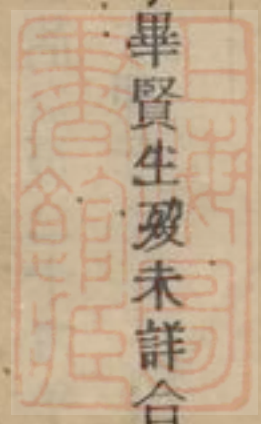 畢賢生歿未詳合